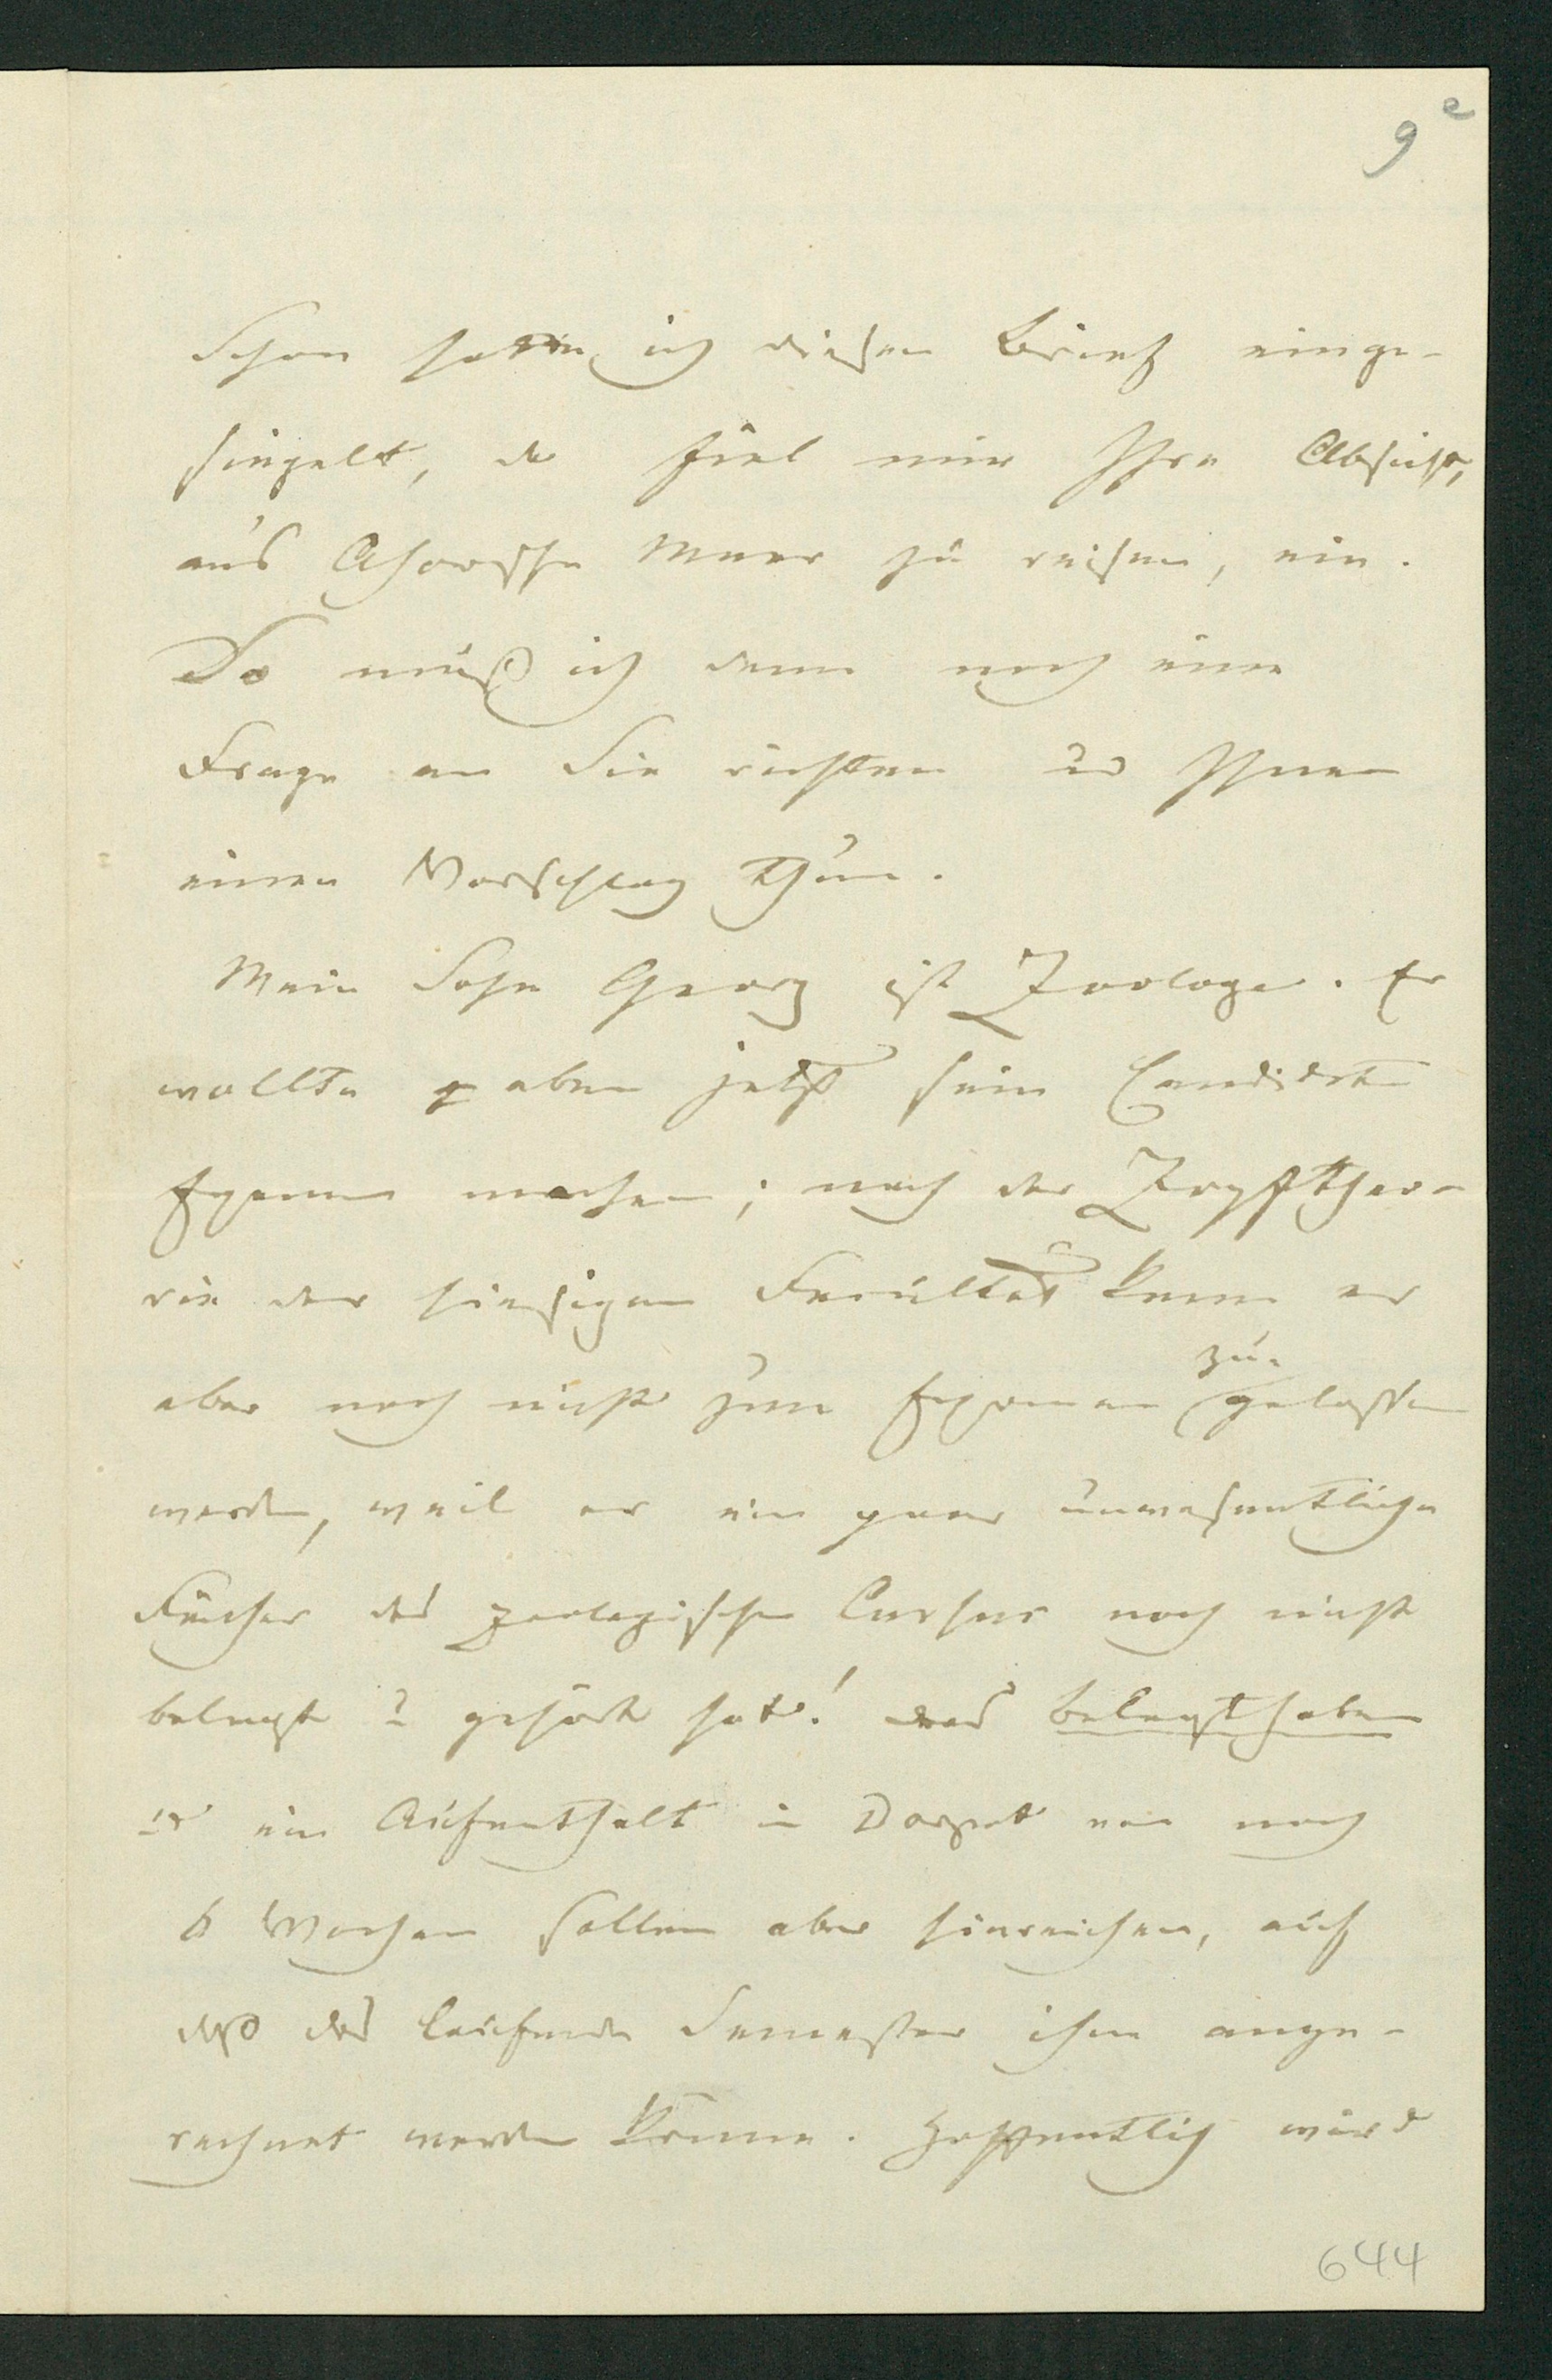 9e
Schon hatte ich diesen Brief einge-
siegelt, da fiel mir Ihre Absicht,
ans Asowsche Meer zu reisen, ein.
Da muß ich denn noch eine
Frage an Sie richten und Ihnen
einen Vorschlag thun.
Mein Sohn Georg ist Zoologe. Er
wollte eben jetzt sein Candidaten
Examen machen; nach der Zopftheo-
rie der hiesigen Facultät kann er
aber noch nicht zum Examen zu-
gelassen
werden, weil er ein paar unwesentliche
Fächer des zoologischen Cursus noch nicht
belegt u gehört hat! das belegt haben
u ein Aufenthalt in Dorpat von noch
6 Wochen sollen aber hinreichen, auf
daß das laufende Semester ihm ange-
rechnet werden könne. Hoffentlich wird
644